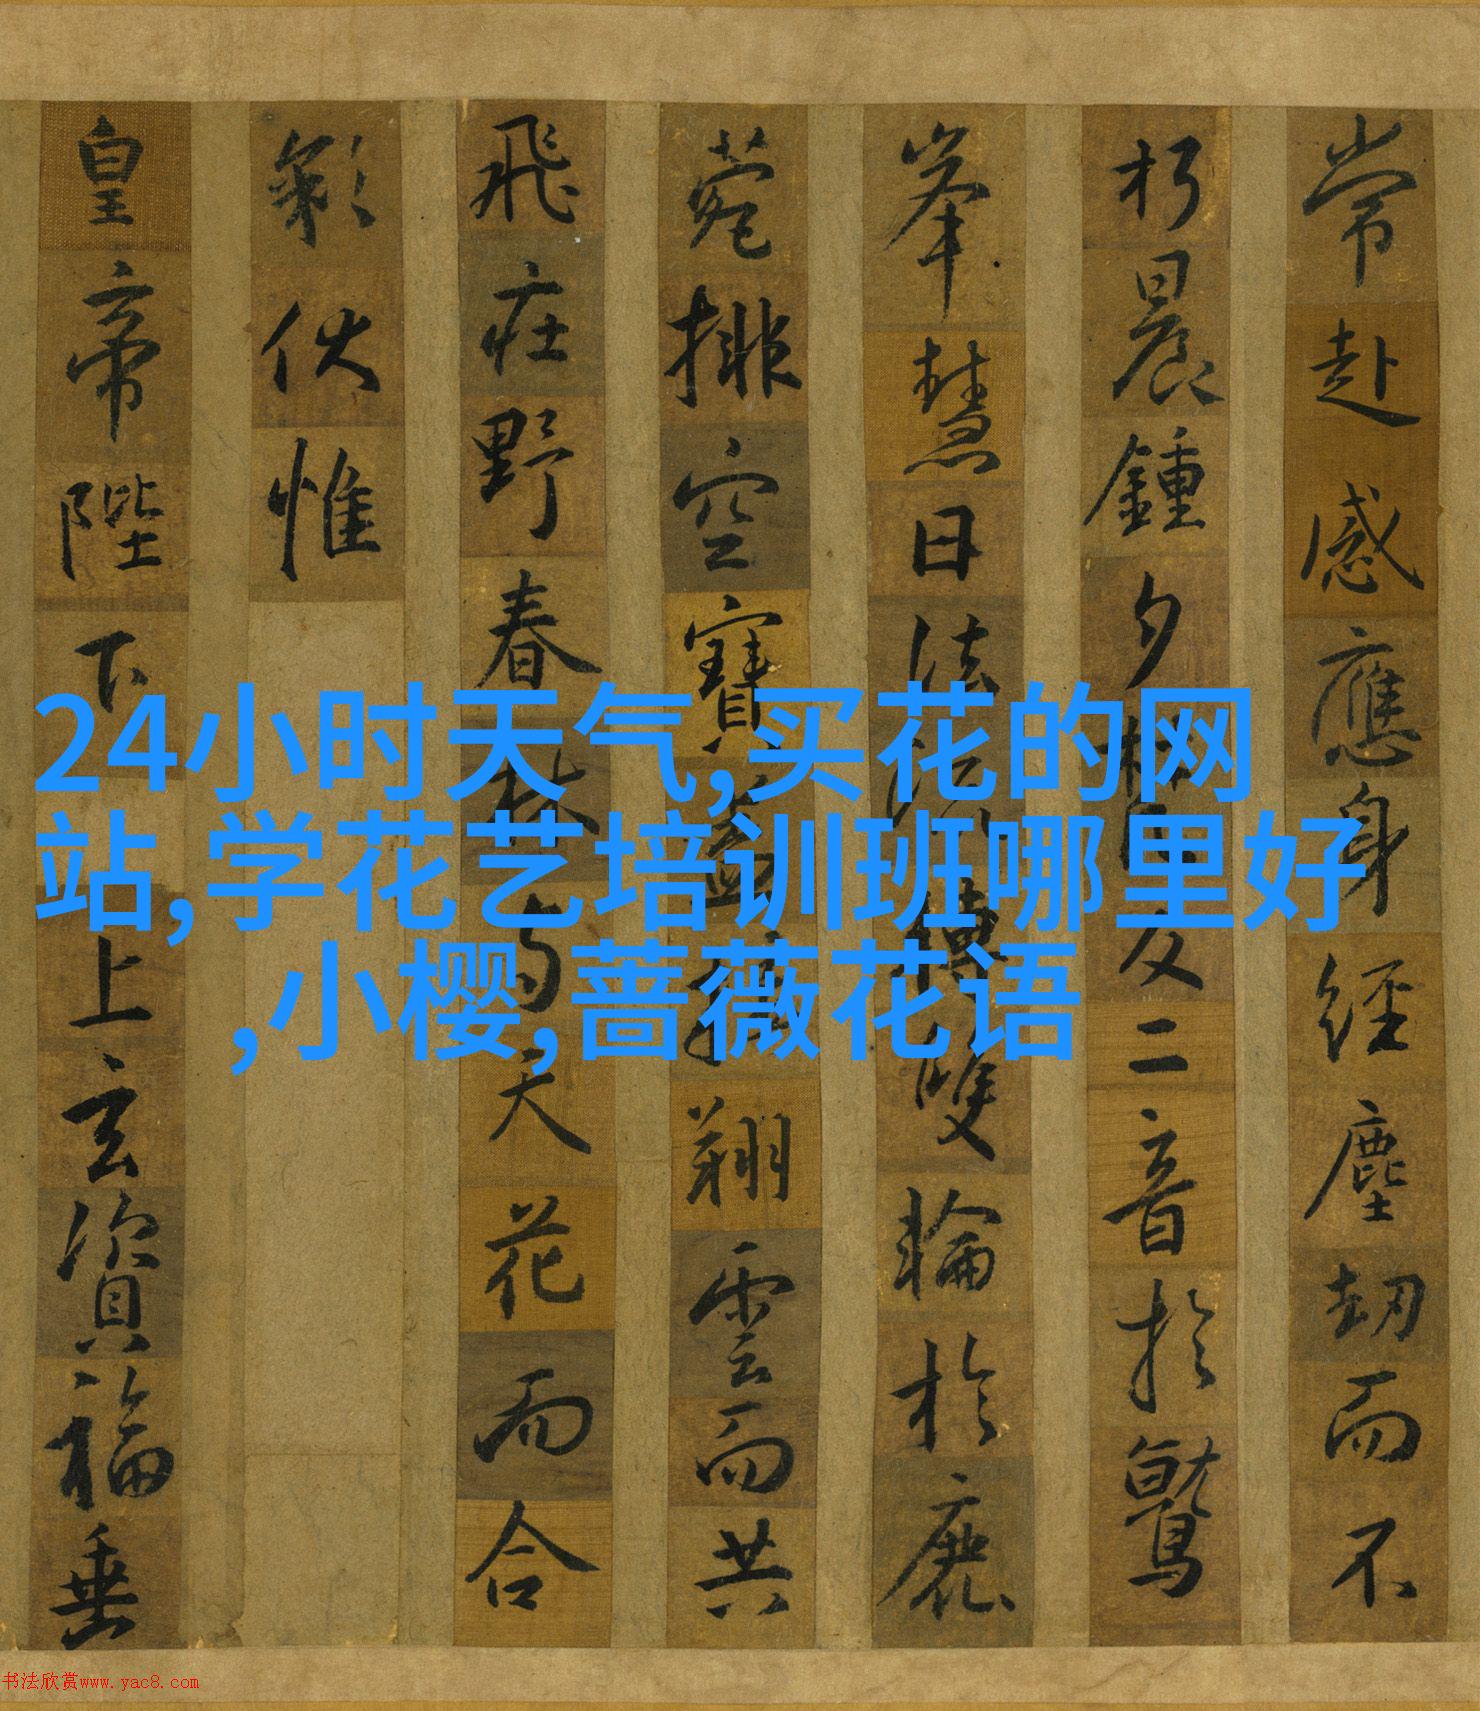 常赴感應身經塵劫而不
朽晨鍾夕梵交二音於鷲
峯慧日法流轉雙輪於鹿
菀排空寶盖接翔雲而共
飛莊野春林与天花而合
彩伏惟
皇帝陛下上玄資福垂
24小时天气,买花的网
站,学花艺培训班哪里好
,小樱,蔷薇花语
书法欣赏www.yac8.com